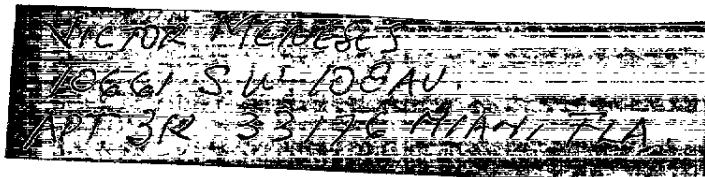 VICTOR MENESES
10661 S.W. 108 AV.
APT 3R 33176 MIAMI, FLA